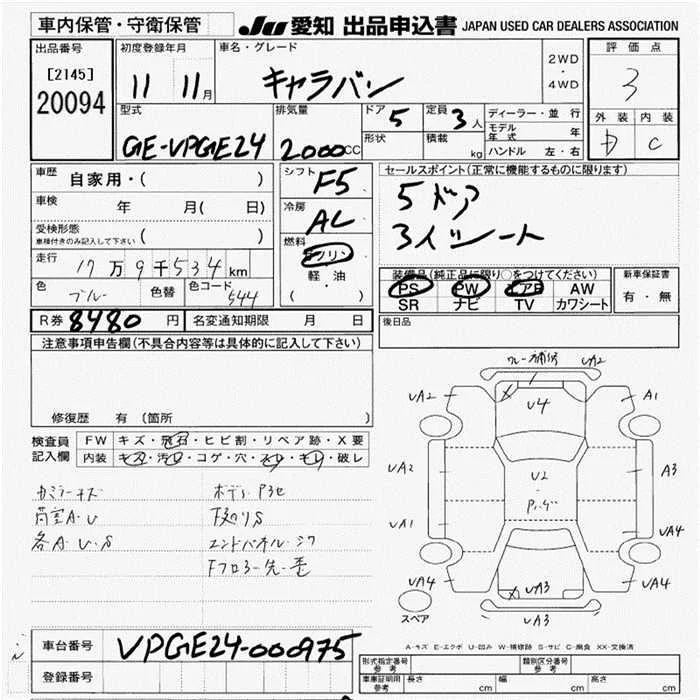 車内保管・守衛保管
JU 愛知 出品申込書 JAPAN USED CAR DEALERS ASSOCIATION
出品番号
[2145]
20094
初度登録年月
11 11月
車名・グレード
キャラバン
2WD
・
4WD
評価点
3
外装 内装
D C
型式
GE-VPGE24
排気量
2000CC
ドア 5
形状
定員 3人
積載 kg
ディーラー・並行
モデル年式 年
ハンドル 左・右
車歴 自家用・( )
車検 年 月( 日)
受検形態
車検付きのみ記入して下さい ( )
走行 17万9千534km
色 ブルー 色替 色コード 544
シフト F5
冷房 AC
燃料
ガソリン
軽・油
( )
セールスポイント(正常に機能するものに限ります)
5ドア
3人シート
装備品(純正品に限り○をつけてください)
PS PW エアB AW
SR ナビ TV カワシート
新車保証書
有・無
R券 8480円 名変通知期限 月 日
後日品
注意事項申告欄(不具合内容等は具体的に記入して下さい)
修復歴 有 (箇所 )
検査員記入欄
FW キズ・飛石・ヒビ割・リペア跡・X要
内装 キズ・汚れ・コゲ・穴・スレ・キレ・破レ
各A・U・S
下廻りS
UA2
UA2
U4
A1
UA2
U2
A3
UA1
UA4
UA4
UA4
UA3
UA3
スペア
A-キズ E-エクボ U-凹み W-補修跡 S-サビ C-腐食 XX-交換済
車台番号 VPGE24-000975
登録番号
形式指定番号 参考
類別区分番号 参考
車庫証明用 参考
長さ cm
幅 cm
高さ cm